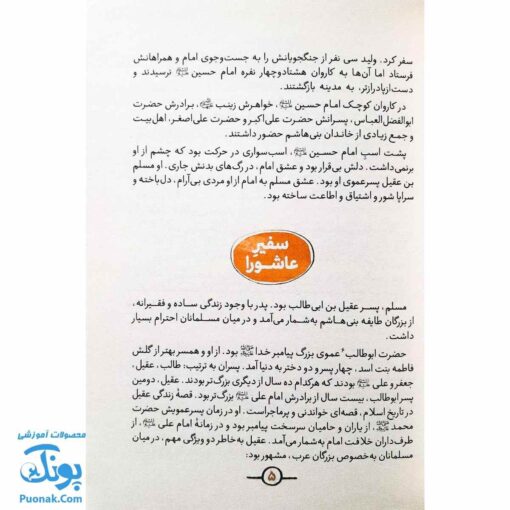 سفر کرد. ولید سی نفر از جنگجویانش را به جست‌وجوی امام و همراهانش
فرستاد اما آن‌ها به کاروان هشتادوچهار نفره امام حسین نرسیدند و
دست‌ازپادرازتر، به مدینه بازگشتند.
در کاروان کوچک امام حسین، خواهرش زینب، برادرش حضرت
ابوالفضل‌العباس، پسرانش حضرت علی‌اکبر و حضرت علی‌اصغر، اهل‌بیت
و جمع زیادی از خاندان بنی‌هاشم حضور داشتند.
پشت اسب امام حسین، اسب‌سواری در حرکت بود که چشم از او
برنمی‌داشت. دلش بی‌قرار بود و عشق امام، در رگ‌های بدنش جاری. او مسلم
بن عقیل پسرعموی او بود. عشق مسلم به امام از او مردی بی‌آرام، دل‌باخته و
سراپا شور و اشتیاق و اطاعت ساخته بود.
سفیر
عاشورا
مسلم، پسر عقیل بن ابی‌طالب بود. پدر با وجود زندگی ساده و فقیرانه،
از بزرگان طایفه بنی‌هاشم به‌شمار می‌آمد و در میان مسلمانان احترام بسیار
داشت.
حضرت ابوطالب* عموی بزرگ پیامبر خدا بود. از او و همسر بهتر از گلش
فاطمه بنت اسد، چهار پسر و دو دختر به دنیا آمد. پسران به ترتیب: طالب، عقیل،
جعفر و علی بودند که هرکدام ده سال از دیگری بزرگ‌تر بودند. عقیل، دومین
پسر ابوطالب، بیست سال از برادرش امام علی بزرگ‌تر بود. قصهٔ زندگی عقیل
در تاریخ اسلام، قصه‌ای خواندنی و پرماجراست. او در زمان پسرعمویش حضرت
محمد، از یاران و حامیان سرسخت پیامبر بود و در زمانهٔ امام علی، از
طرف‌داران خلافت امام به‌شمار می‌آمد. عقیل به‌خاطر دو ویژگی مهم، در میان
مسلمانان به خصوص بزرگان عرب، مشهور بود:
۵
محصولات آموزشی
پونک
Puonak.Com